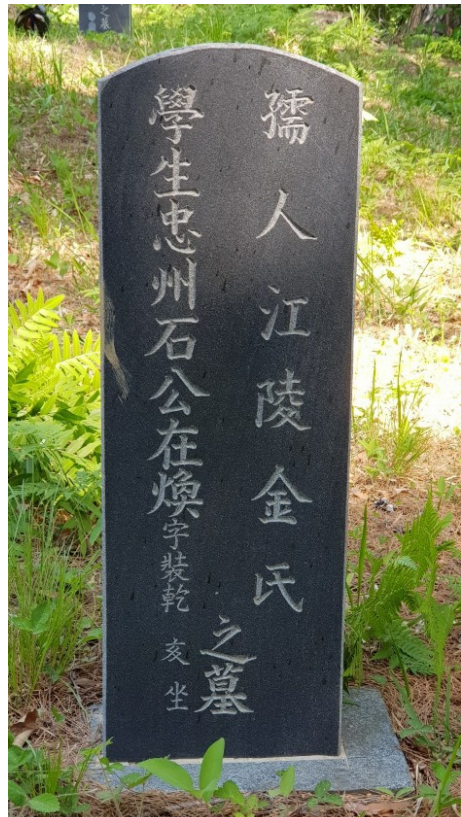 孺人江陵金氏
之墓
學生忠州石公在煥 字裝乾 亥坐
之墓